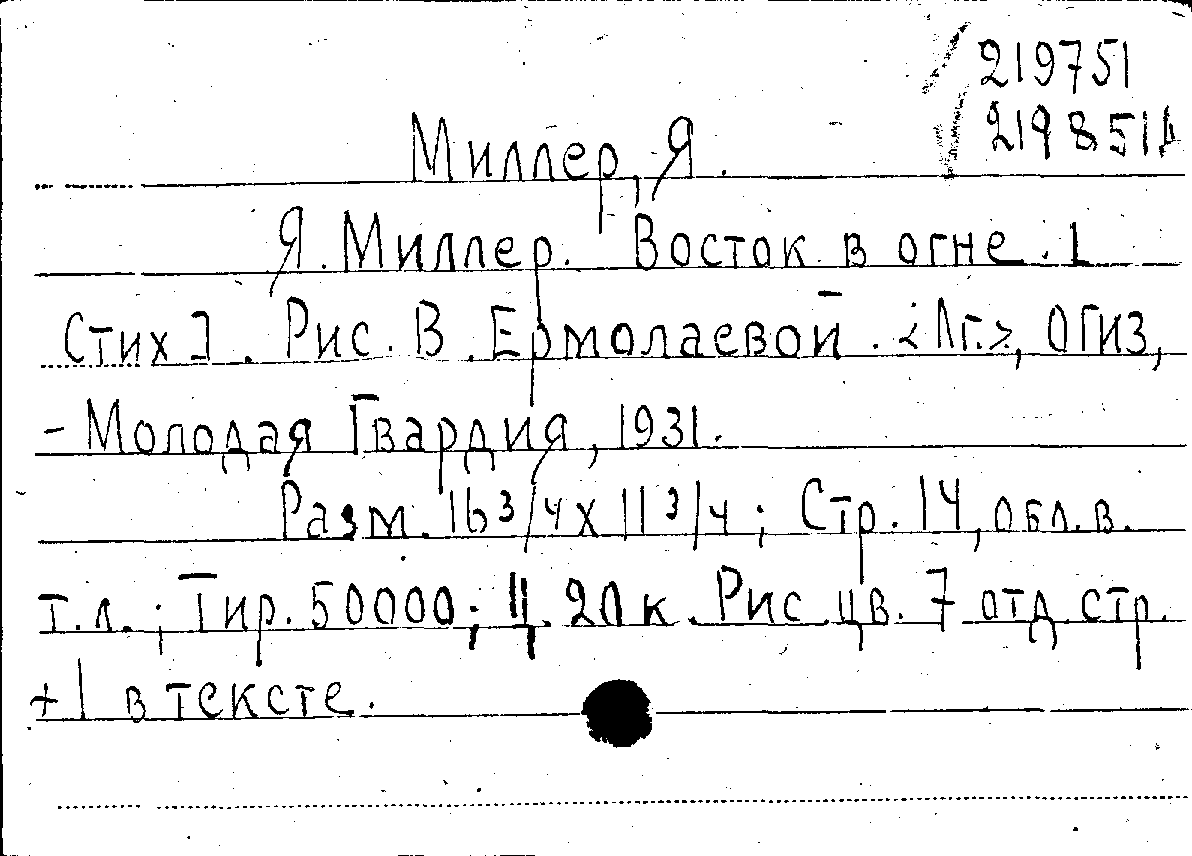 219751
219851д
Миллер, Я.
Я. Миллер. Восток в огне. [
Стих]. Рис. В. Ермолаевой. <Лг.>, ОГИЗ,
- Молодая Гвардия, 1931.
Разм. 16 3/4 х 11 3/4; Стр. 14, обл. в.
т.л.; Тир. 50000; Ц. 20 к. Рис цв. 7 отд стр.
+ 1 в тексте.